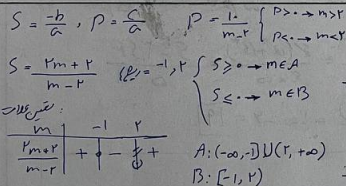 S = -b/a , P = c/a
P = ۱۰/m-۲ { P>۰ → m>۲
P<۰ → m<۲
S = ۲m+۲/m-۲ (ریشه) = -۱, ۲ { S≥۰ → m∈A
S≤۰ → m∈B
تعیین علامت:
m | -۱ ۲
۲m+۲/m-۲ | + - +
A: (-∞,-۱]∪(۲,+∞)
B: [-۱,۲)